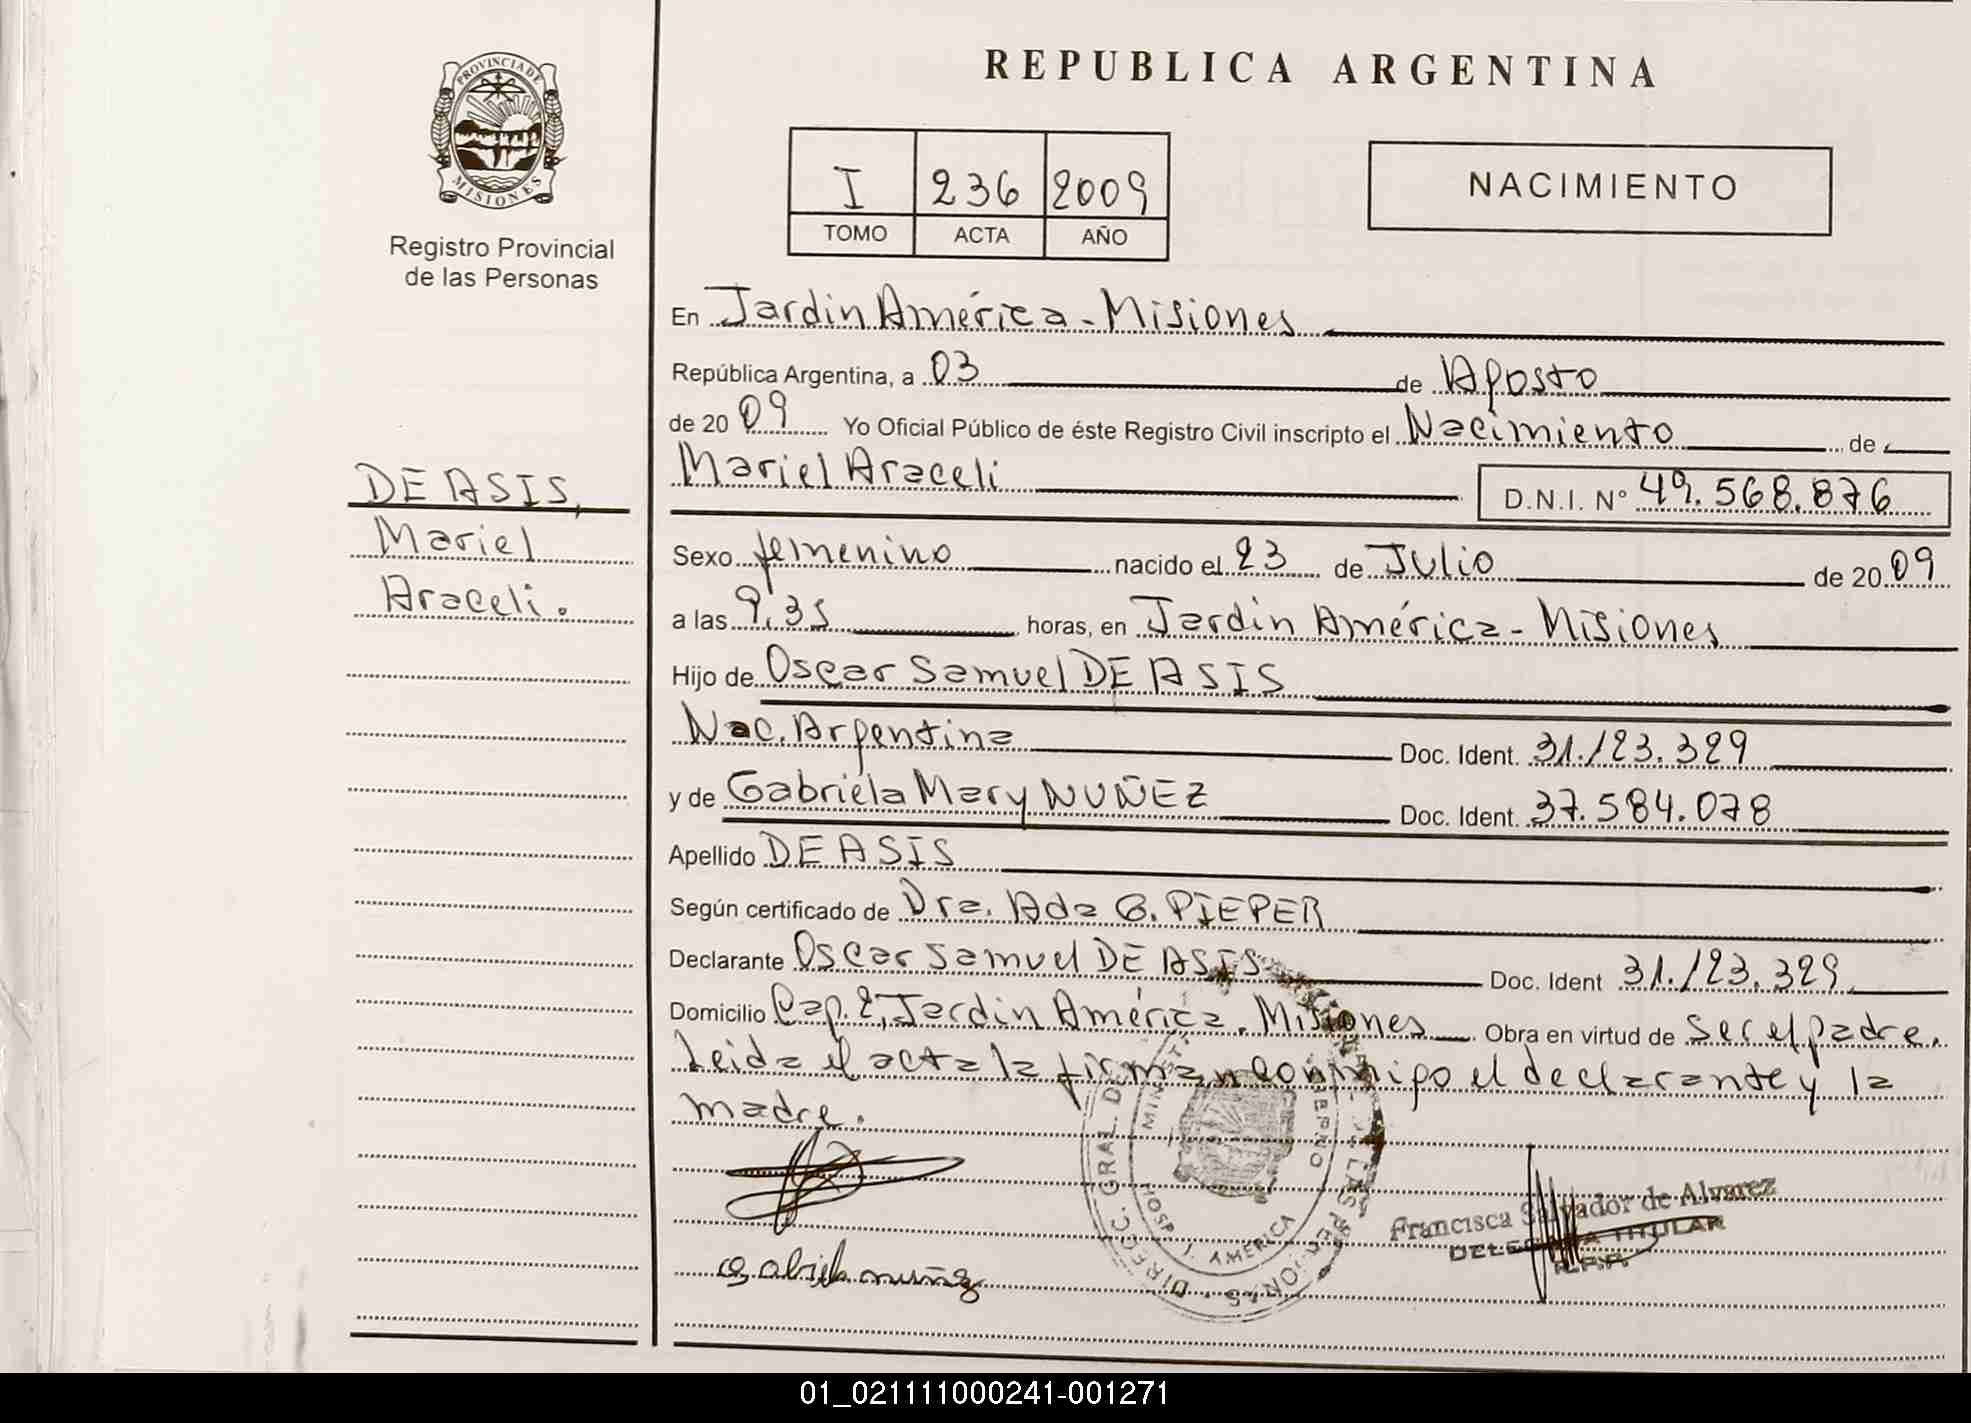 PROVINCIA DE
MISIONES
Registro Provincial
de las Personas
DE ASIS,
Mariel
Araceli.
REPUBLICA ARGENTINA
I 236 2009
TOMO ACTA AÑO
NACIMIENTO
En Jardin América - Misiones
República Argentina, a 03 de Agosto
de 2009 Yo Oficial Público de éste Registro Civil inscripto el Nacimiento de
Mariel Araceli D.N.I. Nº 49.568.876
Sexo femenino nacido el 23 de Julio de 2009
a las 9,35 horas, en Jardin América - Misiones
Hijo de Oscar Samuel DE ASIS
Nac. Argentina Doc. Ident. 31.123.329
y de Gabriela Mary NUÑEZ Doc. Ident. 37.584.078
Apellido DE ASIS
Según certificado de Dra. Ada G. PIEPER
Declarante Oscar Samuel DE ASIS Doc. Ident 31.123.329
Domicilio Cap. 2, Jardin América. Misiones Obra en virtud de Ser el padre.
Leida el acta la firman conmigo el declarante y la
madre.
DIRECC. GRAL. DE LAS PERSONAS
J. AMERICA
Francisca Salvador de Alvarez
DELEGADA TITULAR
R.P.P.
Gabriela nuñez
01_021111000241-001271